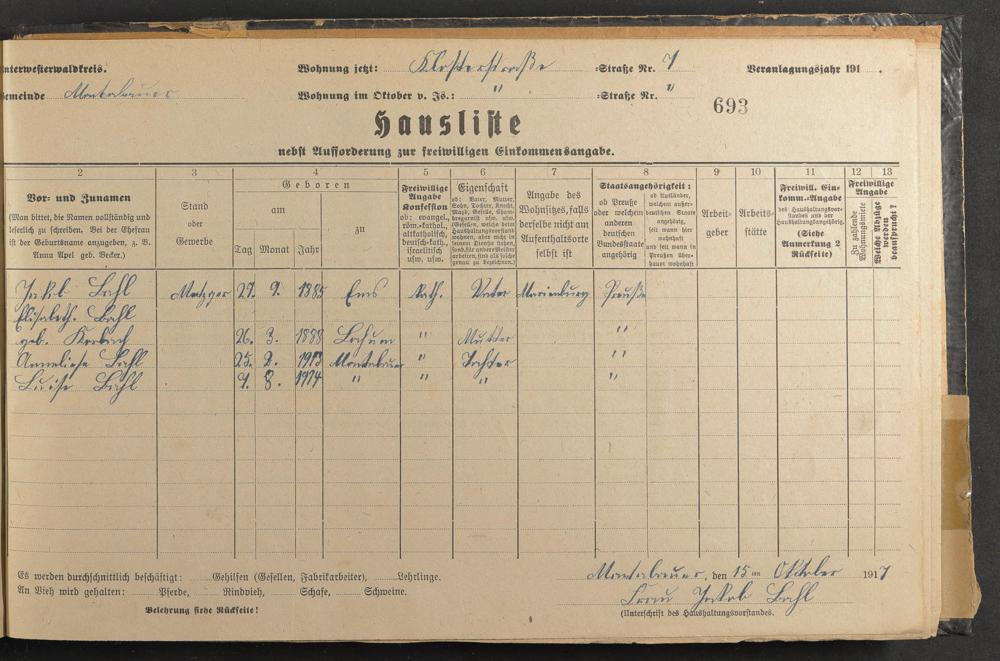 Unterwesterwaldkreis. Wohnung jetzt: Klosterstraße Straße Nr. 7 Veranlagungsjahr 191 .
Gemeinde Montabaur Wohnung im Oktober v. Js.: " Straße Nr. "
693
Hausliste
nebst Aufforderung zur freiwilligen Einkommensangabe.
2 3 4 5 6 7 8 9 10 11 12 13
Vor- und Zunamen
(Man bittet, die Namen vollständig und
leserlich zu schreiben. Bei der Ehefrau
ist der Geburtsname anzugeben, z. B.
Anna Apel geb. Becker.)
Stand
oder
Gewerbe
Geboren
am
zu
Tag Monat Jahr
Freiwillige
Angabe
Konfession
ob: evangel.,
röm.-kathol.,
altkatholisch,
deutsch-kath.,
israelitisch
usw. usw.
Eigenschaft
ob: Vater, Mutter,
Sohn, Tochter, Knecht,
Magd, Geselle,
Angabe des
Wohnsitzes, falls
derselbe nicht am
Aufenthaltsorte
selbst ist
Staatsangehörigkeit:
ob Preuße
oder welchem
anderen
deutschen
Bundesstaate
angehörig
ob Ausländer,
welchem außer-
deutschen Staate
angehörig,
seit wann hier
wohnhaft
und seit wann in
Preußen über-
haupt wohnhaft
Arbeit-
geber
Arbeits-
stätte
Freiwill. Ein-
komm.-Angabe
des Haushaltungsvor-
standes und der
Haushaltungsangehörig.
(Siehe
Anmerkung 2
Rückseite)
Freiwillige
Angabe
Zu zahlende
Wohnungsmiete
Welche Abzüge
werden
beansprucht?
Jakob Bahl Metzger 27. 9. 1885 Ems Kath. Vater Marienburg Preuße
Elisabeth. Bahl
geb. 26. 3. 1888 Bochum " Mutter "
Anneliese Bahl 25. 2. 1913 Montabaur " Tochter "
Luise Bahl 9. 8. 1914 " " " "
Es werden durchschnittlich beschäftigt: Gehilfen (Gesellen, Fabrikarbeiter), Lehrlinge.
An Vieh wird gehalten: Pferde, Rindvieh, Schafe, Schweine.
Belehrung siehe Rückseite!
Montabaur, den 15ten Oktober 1917
Frau Jakob Bahl
(Unterschrift des Haushaltungsvorstandes.